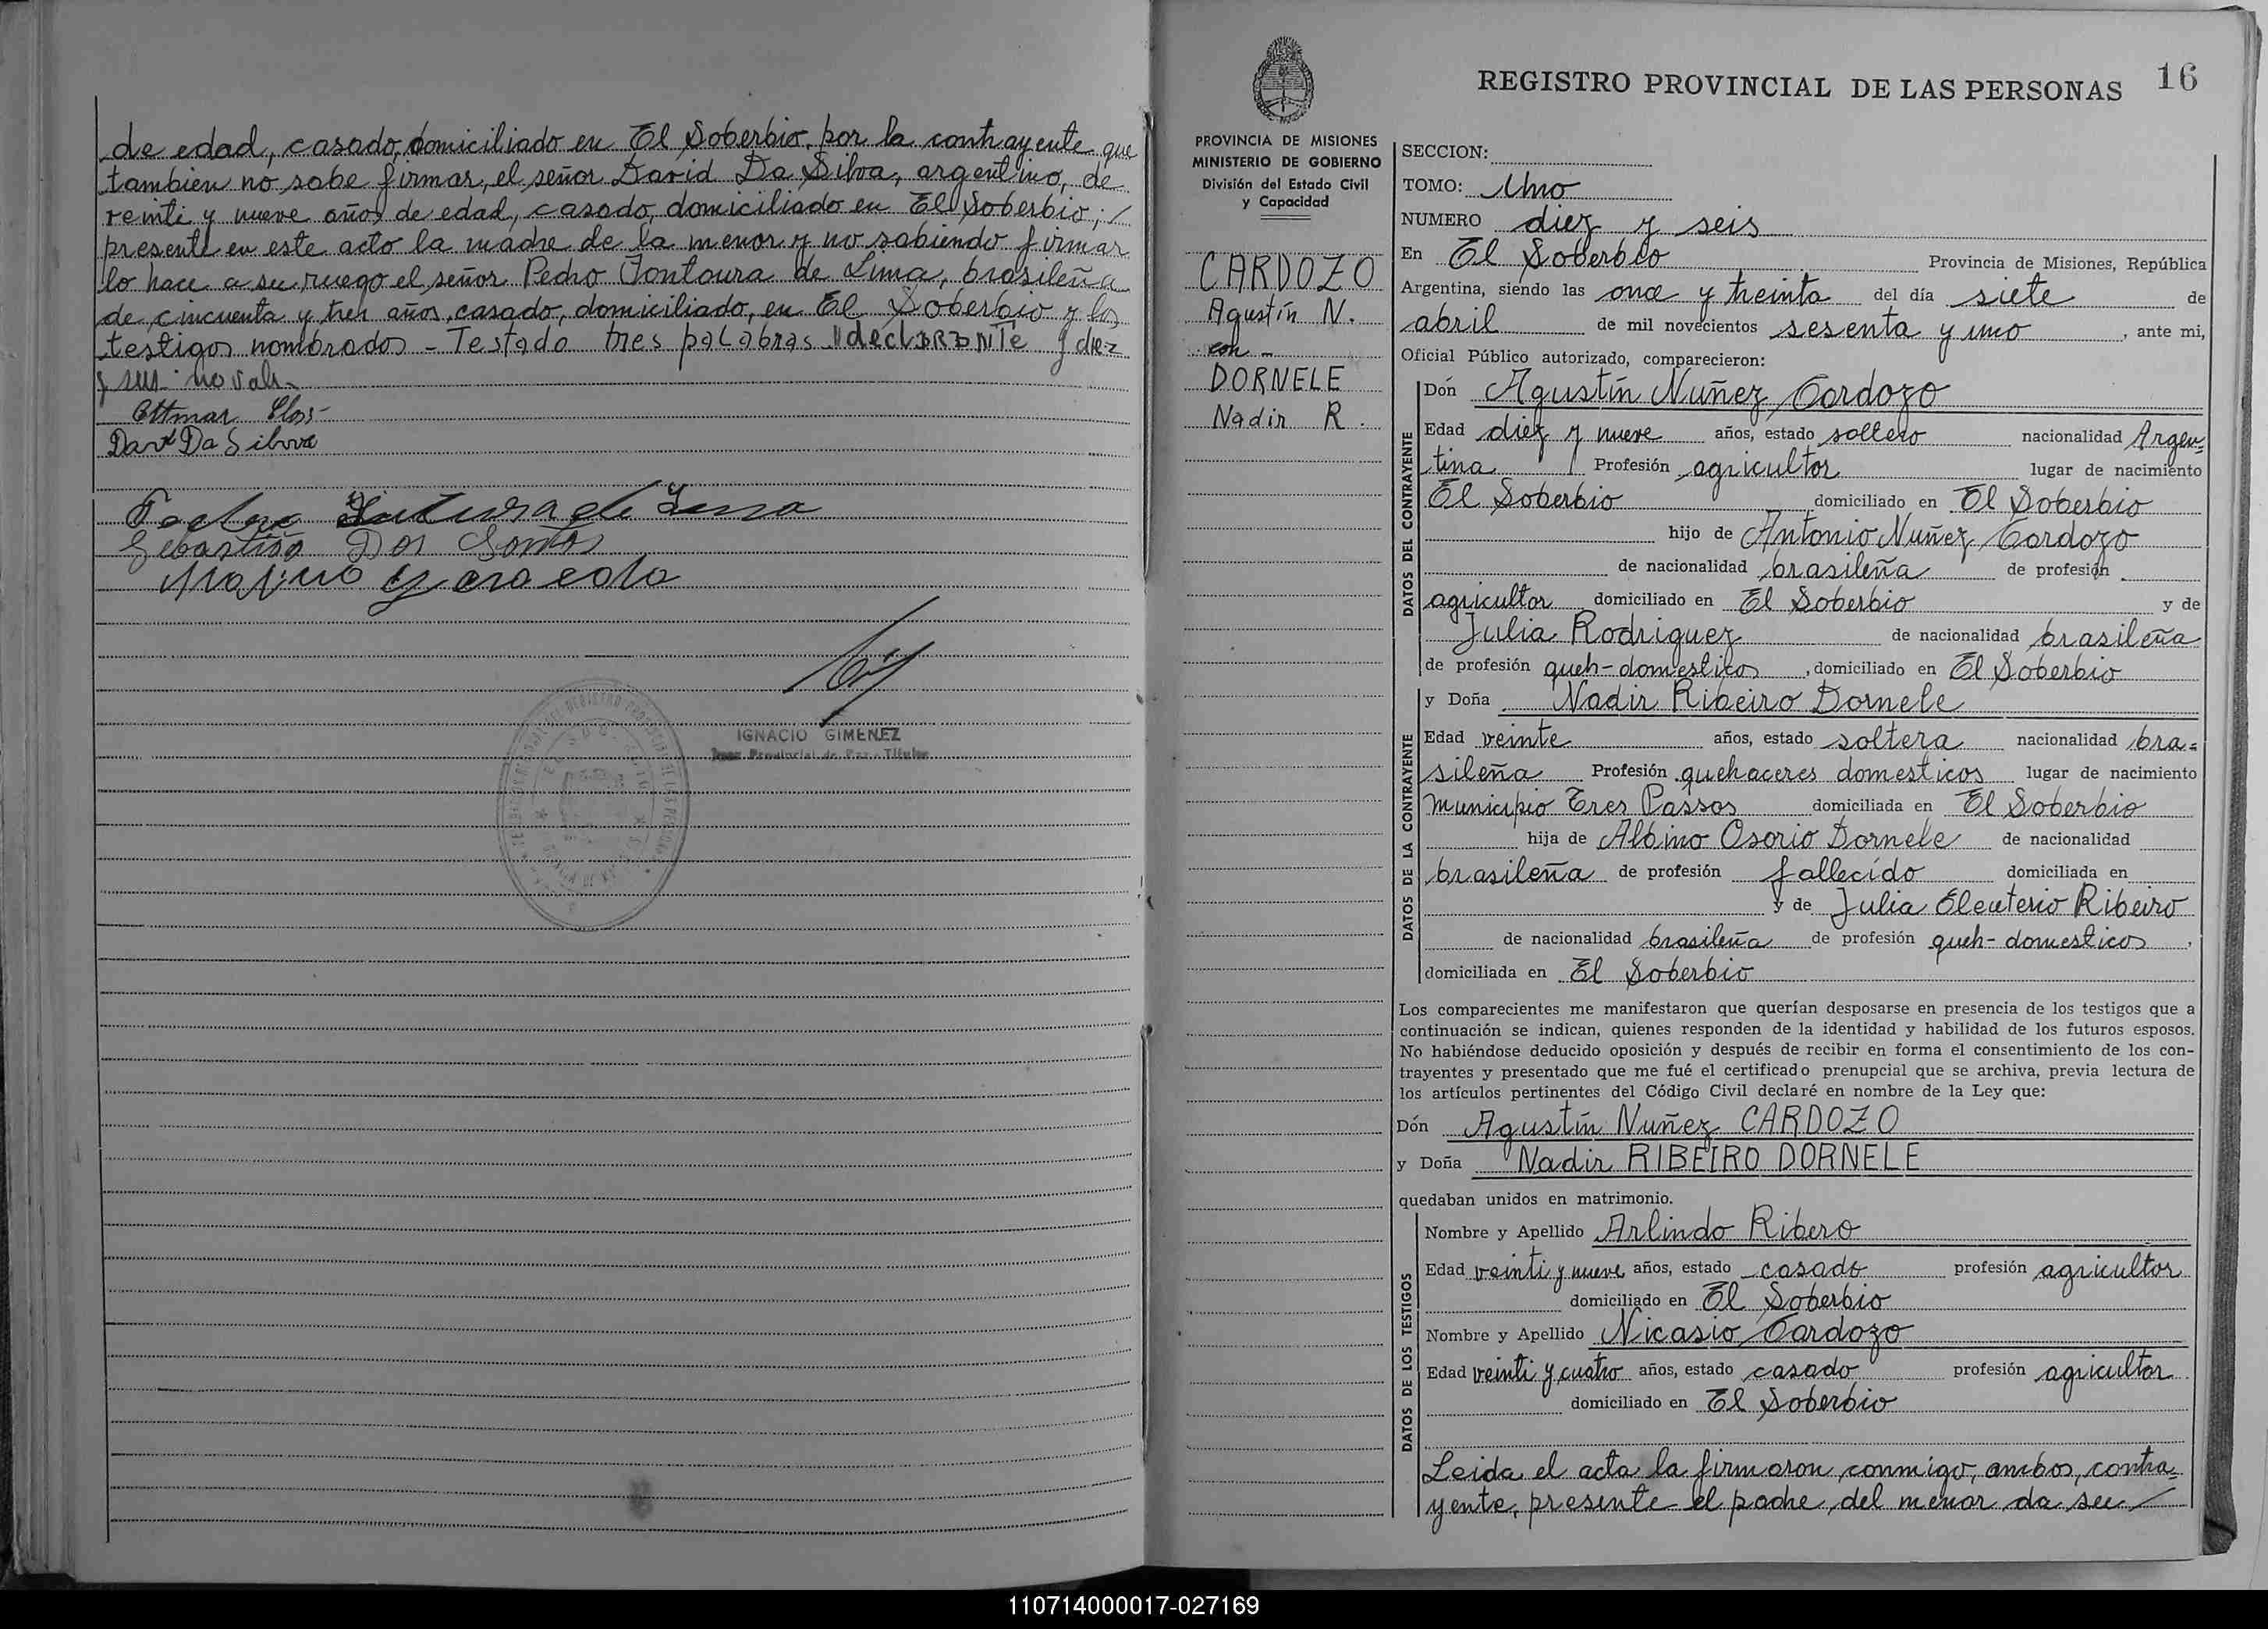 de edad, casado, domiciliado en El Soberbio, por la contrayente que
tambien no sabe firmar, el señor David Da Silva, argentino, de
veinti y nueve años de edad, casado, domiciliado en El Soberbio; /
presente en este acto la madre de la menor y no sabiendo firmar
lo hace a su ruego el señor Pedro Fontoura de Lima, brasileña
de cincuenta y tres años, casado, domiciliado, en El Soberbio y los
testigos nombrados - Testado tres palabras "declARANTE y diez
y seis" no vale
Ottmar
Da Silva
de
Sebastião Dos Santos
IGNACIO GIMENEZ
Juez Provincial de Paz - Titular
REGISTRO PROVINCIAL DE LAS PERSONAS 16
PROVINCIA DE MISIONES
MINISTERIO DE GOBIERNO
División del Estado Civil
y Capacidad
CARDOZO
Agustín N.
con -
DORNELE
Nadir R.
SECCION:
TOMO: Uno
NUMERO diez y seis
En El Soberbio Provincia de Misiones, República
Argentina, siendo las once y treinta del día siete de
abril de mil novecientos sesenta y uno, ante mi,
Oficial Público autorizado, comparecieron:
DATOS DEL CONTRAYENTE
Dón Agustín Nuñez Cardozo
Edad diez y nueve años, estado soltero nacionalidad Argen-
tina Profesión agricultor lugar de nacimiento
El Soberbio domiciliado en El Soberbio
hijo de Antonio Nuñez Cardozo
de nacionalidad brasileña de profesión
agricultor domiciliado en El Soberbio y de
Julia Rodriguez de nacionalidad brasileña
de profesión queh-domesticos, domiciliado en El Soberbio
DATOS DE LA CONTRAYENTE
y Doña Nadir Ribeiro Dornele
Edad veinte años, estado soltera nacionalidad bra-
sileña Profesión quehaceres domesticos lugar de nacimiento
municipio Tres Passos domiciliada en El Soberbio
hija de Albino Osorio Dornele de nacionalidad
brasileña de profesión fallecido domiciliada en
y de Julia Eleuterio Ribeiro
de nacionalidad brasileña de profesión queh-domesticos,
domiciliada en El Soberbio
Los comparecientes me manifestaron que querían desposarse en presencia de los testigos que a
continuación se indican, quienes responden de la identidad y habilidad de los futuros esposos.
No habiéndose deducido oposición y después de recibir en forma el consentimiento de los con-
trayentes y presentado que me fué el certificado prenupcial que se archiva, previa lectura de
los artículos pertinentes del Código Civil declaré en nombre de la Ley que:
Dón Agustín Nuñez CARDOZO
y Doña Nadir RIBEIRO DORNELE
quedaban unidos en matrimonio.
DATOS DE LOS TESTIGOS
Nombre y Apellido Arlindo Ribero
Edad veinti y nueve años, estado casado profesión agricultor
domiciliado en El Soberbio
Nombre y Apellido Nicasio Cardozo
Edad veinti y cuatro años, estado casado profesión agricultor
domiciliado en El Soberbio
Leida el acta la firmaron conmigo, ambos contra-
yente, presente el padre del menor da su /
110714000017-027169